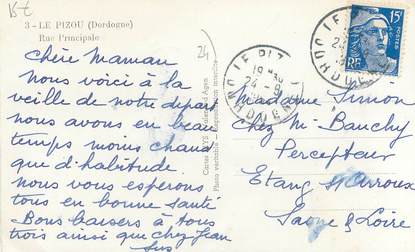 Bt
3 - LE PIZOU (Dordogne)
Rue Principale
24
chère Maman
Nous voici à la
veille de notre départ
nous avons eu beau
temps moins chaud
que d'habitude.
nous vous espérons
tous en bonne santé
Bons baisers à tous
trois ainsi que chez Jean
Cartes
Photo véritable - Reproduction interdite
LE PIZOU
19H30
24-8
DORDOGNE
15F
RF
Madame Simon
Chez Mr Bauchy
Percepteur
Etang s/ Arroux
Saône & Loire